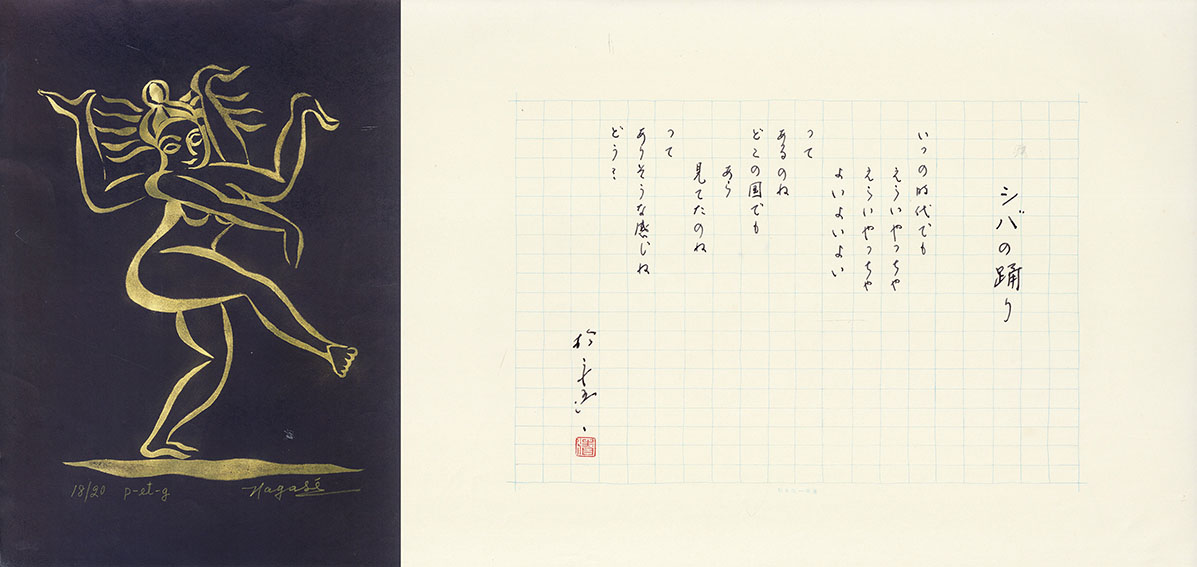 18/20 p-et-g Nagasé
シバの踊り
いつの時代でも
えらいやっちゃ
えらいやっちゃ
よいよいよい
って
あるのね
どこの国でも
あら
見てたのね
って
ありそうな感じね
どう?